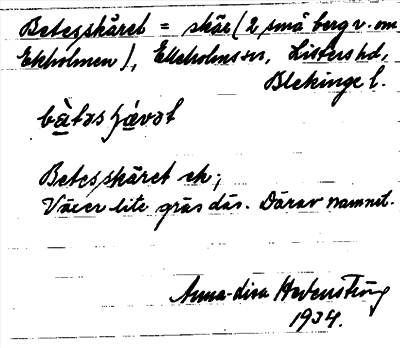 Betesskäret = skär (2 små berg v. om
Ekholmen), Elleholms sn, Listers hd,
Blekinge l.
Betesskäret ek;
Växer lite gräs där. Därav namnet.
Anna-Lisa
1934.